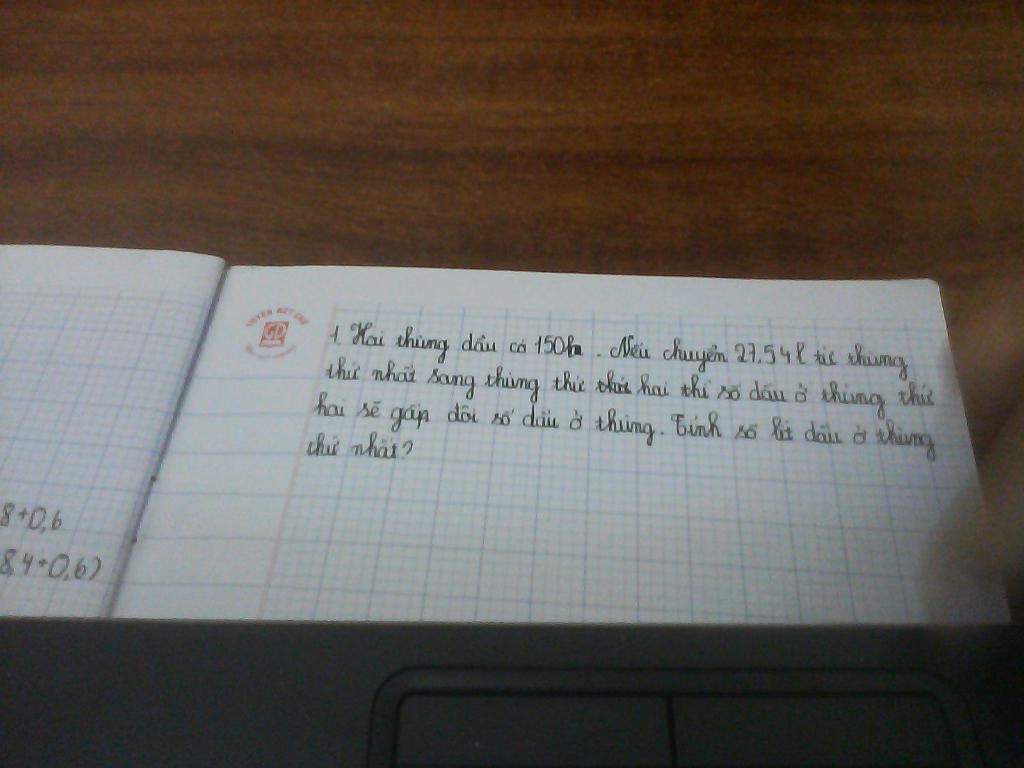 LUYỆN NÉT CHỮ
GD
1. Hai thùng dầu có 150l . Nếu chuyển 27,54l từ thùng
thứ nhất sang thùng thứ thứ hai thì số dầu ở thùng thứ
hai sẽ gấp đôi số dầu ở thùng. Tính số lít dầu ở thùng
thứ nhất?
8+0,6
8,4+0,6)